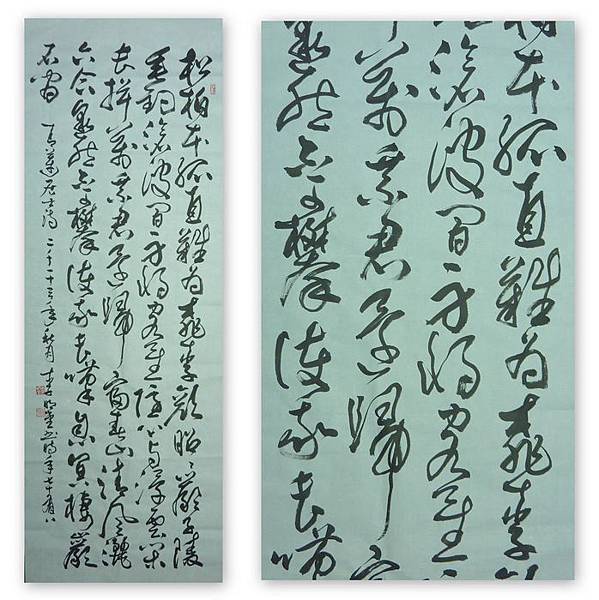 松柏本孤直難為桃李顏昭昭嚴子陵
垂釣滄波間身將客星隱心與浮雲閒
長揖萬乘君還歸富春山清風灑
六合邈然不可攀使我長嘆息冥棲巖
石間 青蓮居士詩 二千十三年秋月 時年七十有八
柏本孤直難為桃李顏
滄波間身將客星隱
萬乘君還歸富
邈然不可攀使我長嘆